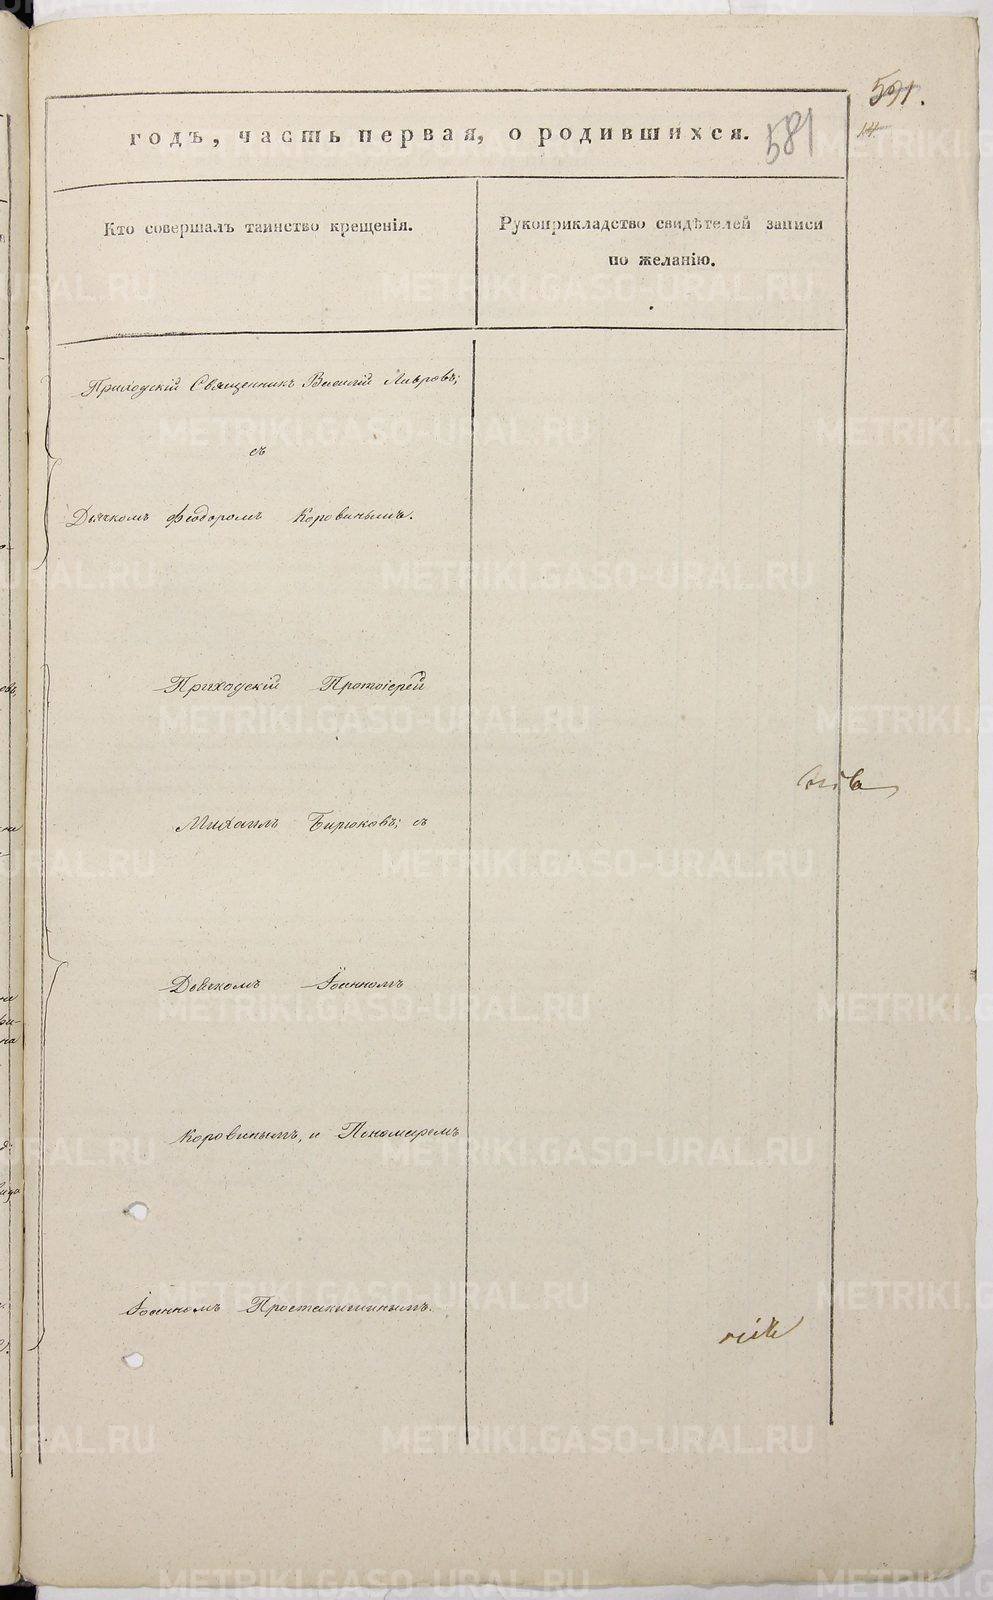 591.
14
годъ, часть первая, о родившихся.
581
Кто совершалъ таинство крещенія.
Рукоприкладство свидѣтелей записи
по желанію.
Приходскій Священникъ Василій Лавровъ;
съ
Дьячкомъ Ѳеодоромъ Коровинымъ.
Приходскій Протоіерей
Михаилъ Бирюковъ; съ
Дьячкомъ Іоанномъ
Коровинымъ, и Пономаремъ
Іоанномъ
METRIKI.GASO-URAL.RU